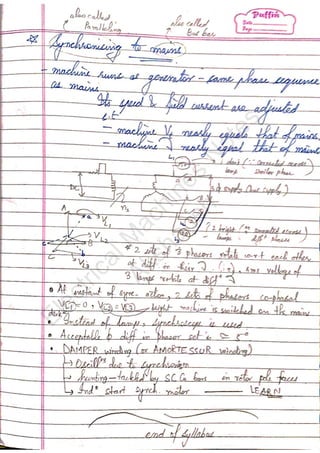 also called
Paralleling
also called
Bus bar
Puffin
Date
Page
Synchronising to mains
- machine runs as generator - same phase sequence
as mains
Its speed & field current are adjusted
s.t
- machine V nearly equals that of mains
- machine nearly equal that of mains
1 dark (∵ connected across
lamp similar phase)
3 ϕ supply (bus supply)
DC
2 bright (∵ connected across
lamps diff phases
A
B
C
# 2 sets of 3 phasors rotate w.r.t each other
at diff in their (∴), rms voltage of
3 lamps rotate at diff
• At instant of sync. 2 sets of phasors co-phasal
dark
bright machine is switched on the mains
• Instead of lamps, synchroscope is used
• Acceptable diff in phasor set is ≃ 5°
• DAMPER winding (or AMORTESSUR winding)
→ Oscillⁿ due to synchronism
→ Hunting - tackled by S.C Cu bars in rotor pole faces
→ Indⁿ start synch. motor — LEARN
end of syllabus